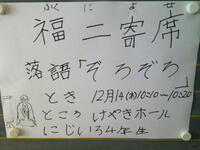 ふくによせ
福二寄席
落語「ぞろぞろ」
とき 12月14(水)10:10〜10:20
ところ けやきホール
にじいろ4年生